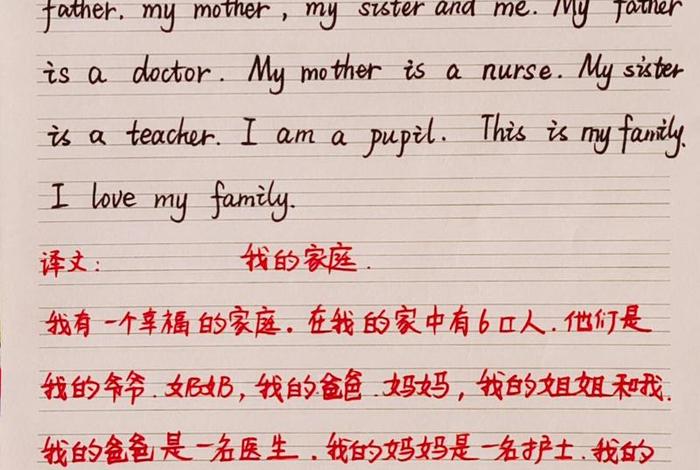 father. my mother, my sister and me. My father
is a doctor. My mother is a nurse. My sister
is a teacher. I am a pupil. This is my family.
I love my family.
译文: 我的家庭.
我有一个幸福的家庭. 在我的家中有6口人. 他们是
我的爷爷. 奶奶, 我的爸爸. 妈妈, 我的姐姐和我.
我的爸爸是一名医生. 我的妈妈是一名护士. 我的